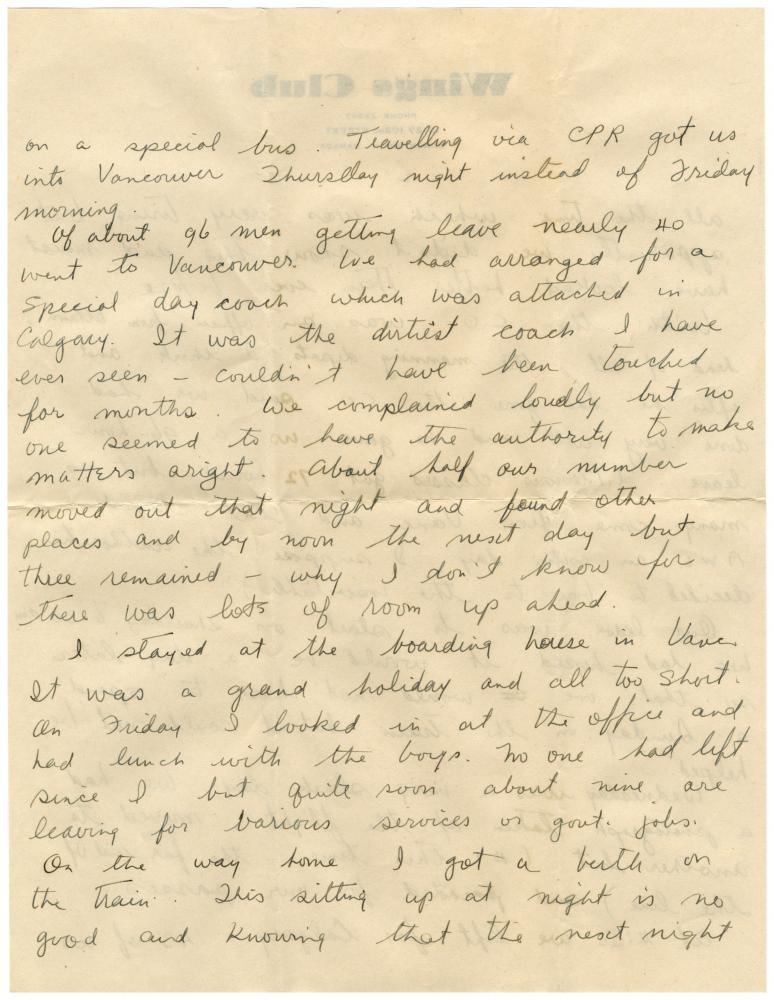 Wings Club
on a special bus. Travelling via CPR got us
into Vancouver Thursday night instead of Friday
morning.
Of about 96 men getting leave nearly 40
went to Vancouver. We had arranged for a
special day coach which was attached in
Calgary. It was the dirtiest coach I have
ever seen – couldn't have been touched
for months. We complained loudly but no
one seemed to have the authority to make
matters aright. About half our number
moved out that night and found other
places and by noon the next day but
three remained – why I don't know for
there was lots of room up ahead.
I stayed at the boarding house in Vanc.
It was a grand holiday and all too short.
On Friday I looked in at the office and
had lunch with the boys. No one had left
since I but quite soon about nine are
leaving for various services or govt. jobs.
On the way home I got a berth on
the train. This sitting up at night is no
good and knowing that the next night